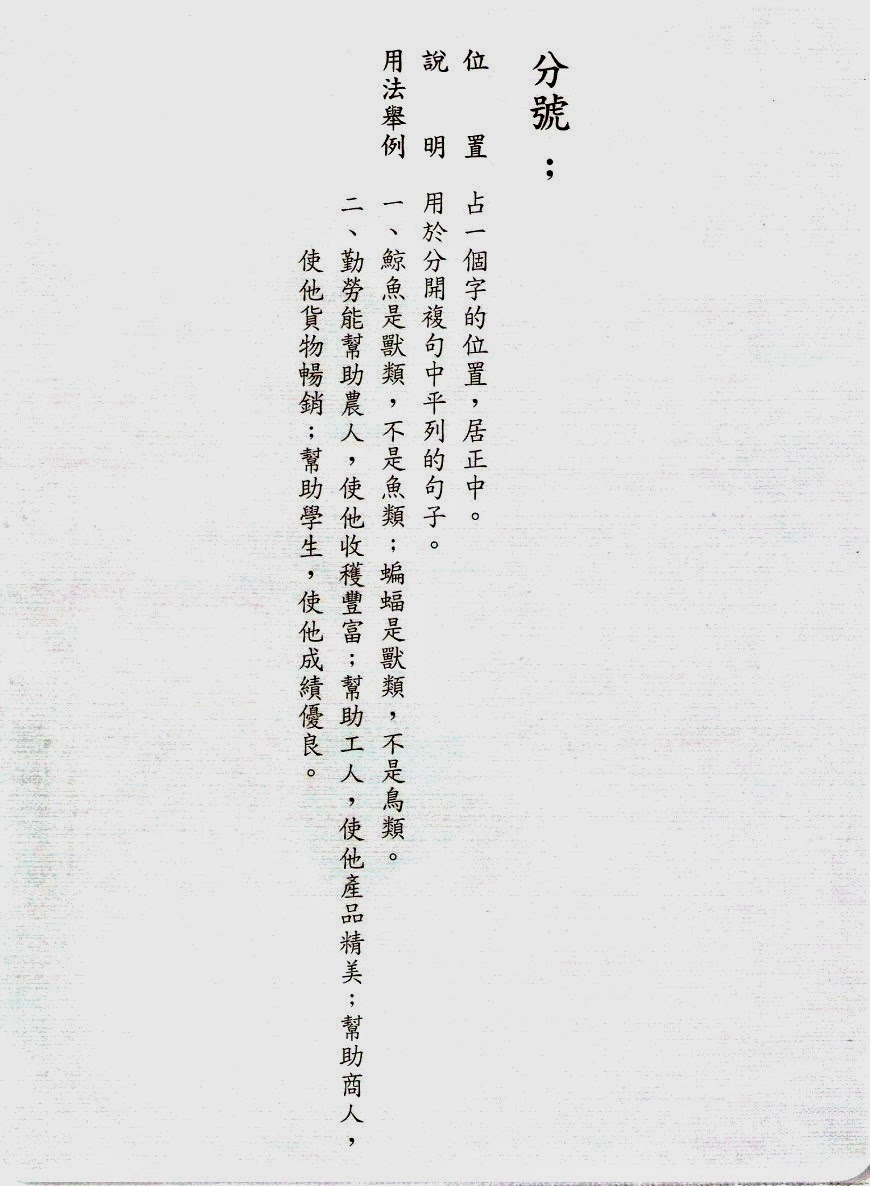 分號;
位置 占一個字的位置,居正中。
說明 用於分開複句中平列的句子。
用法舉例 一、鯨魚是獸類,不是魚類;蝙蝠是獸類,不是鳥類。
二、勤勞能幫助農人,使他收穫豐富;幫助工人,使他產品精美;幫助商人,
使他貨物暢銷;幫助學生,使他成績優良。